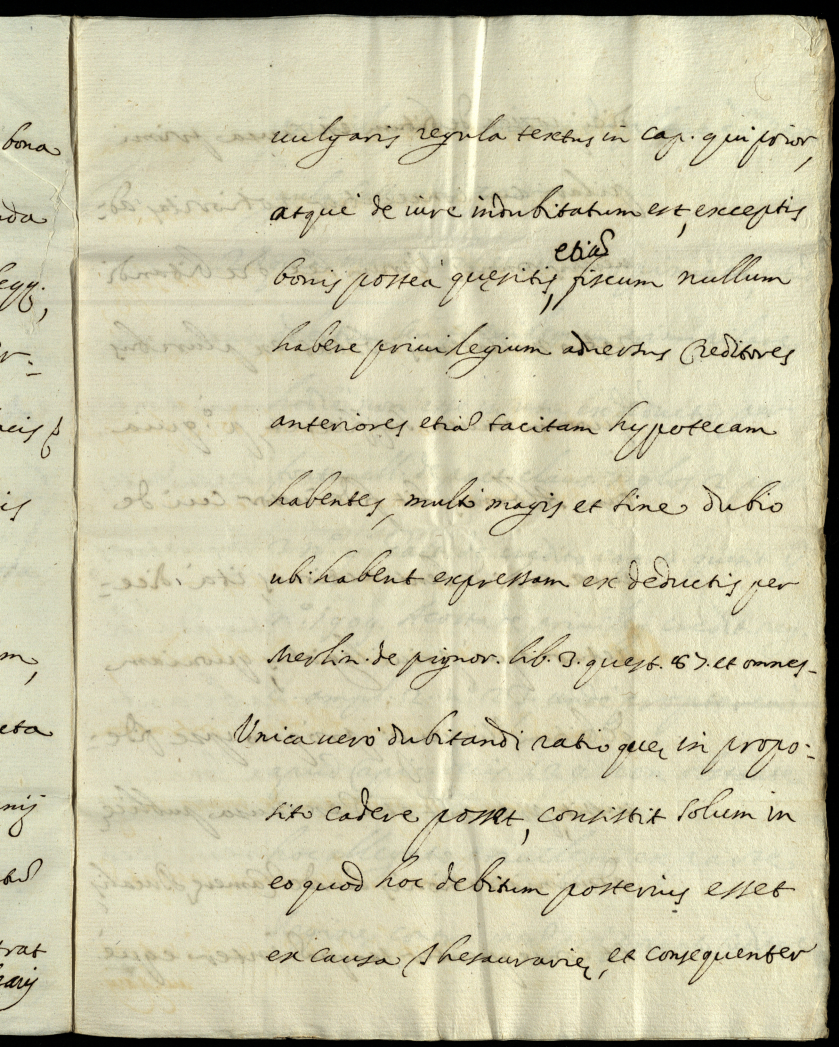 bona
vulgaris regula textus in cap. qui prior,
atque de iure indubitatum est, exceptis
etiã
bonis posteà quęsitis, fiscum nullum
habere priuilegium aduersus Creditores
anteriores etiã tacitam hypotecam
habentes, multò magis et sine dubio
ubi habent expressam ex deductis per
Merlin. de pignor. lib. 3. quest. 67. et omnes-
Unica uerò dubitandi ratio quę in propo-
sito cadere posset, consistit solum in
eo quod hoc debitum posterius esset
ex causa Thesaurarię, et consequenter